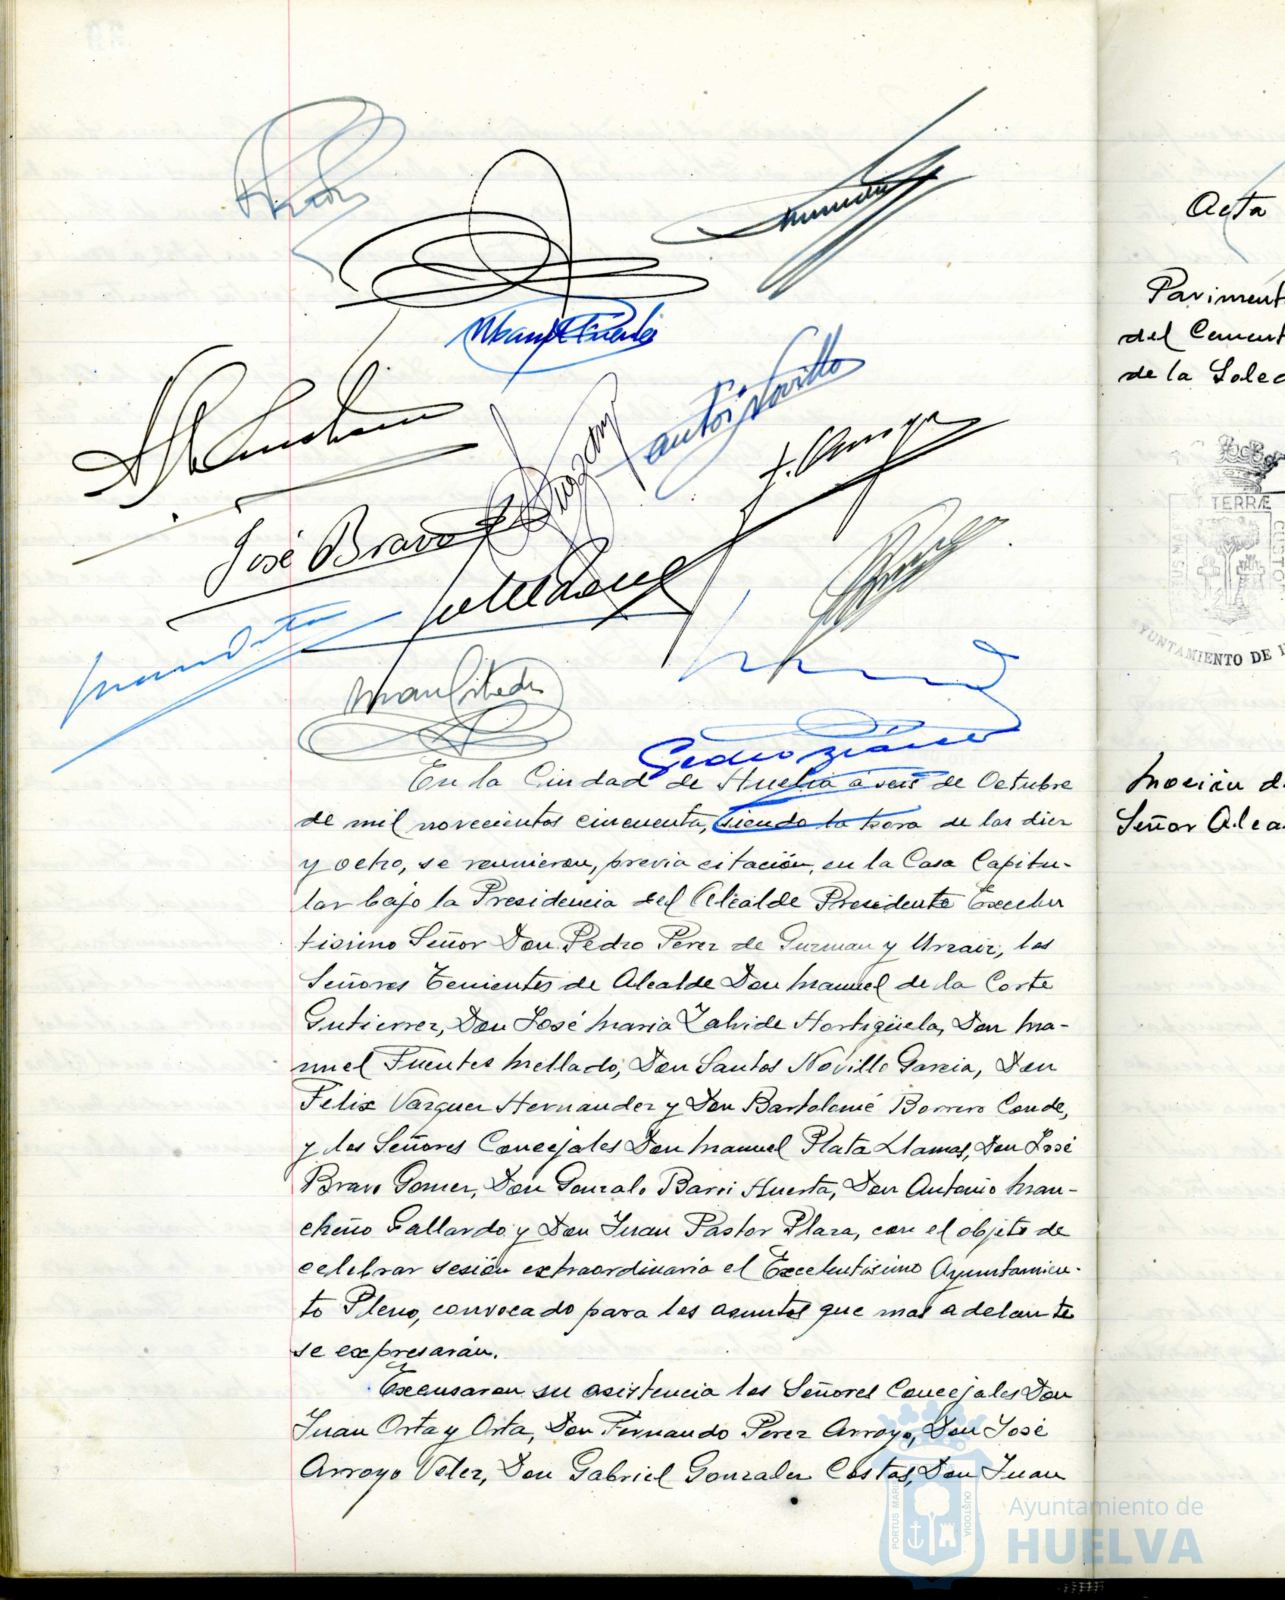 José Bravo
En la Ciudad de Huelva a seis de Octubre
de mil novecientos cincuenta, siendo la hora de las diez
y ocho, se reunieron, previa citación, en la Casa Capitu-
lar bajo la Presidencia del Alcalde Presidente Excelen
tisimo Señor Don Pedro Perez de Guzman y Urzaiz, los
Señores Tenientes de Alcalde Don Manuel de la Corte
Gutierrez, Don José Maria Zalvide Hortigüela, Don Ma-
nuel Fuentes Mellado, Don Santos Novillo Garcia, Don
Felix Vazquez Hernandez y Don Bartolomé Borrero Conde,
y los Señores Concejales Don Manuel Plata Llamas, Don José
Bravo Gomez, Don Gonzalo Barri Huerta, Don Antonio Man-
cheño Gallardo y Don Juan Pastor Plaza, con el objeto de
celebrar sesión extraordinaria el Excelentisimo Ayuntamien-
to Pleno, convocado para los asuntos que mas adelante
se expresarán.
Excusaron su asistencia los Señores Concejales Don
Juan Orta y Orta, Don Fernando Perez Arroyo, Don José
Arroyo Velez, Don Gabriel Gonzalez Costas, Don Juan
Acta
Paviment
del Cement
de la Soled
TERRÆ
CUSTO
AYUNTAMIENTO DE
Moción d
Señor Alca
PORTUS MARIS
CUSTODIA
Ayuntamiento de
HUELVA